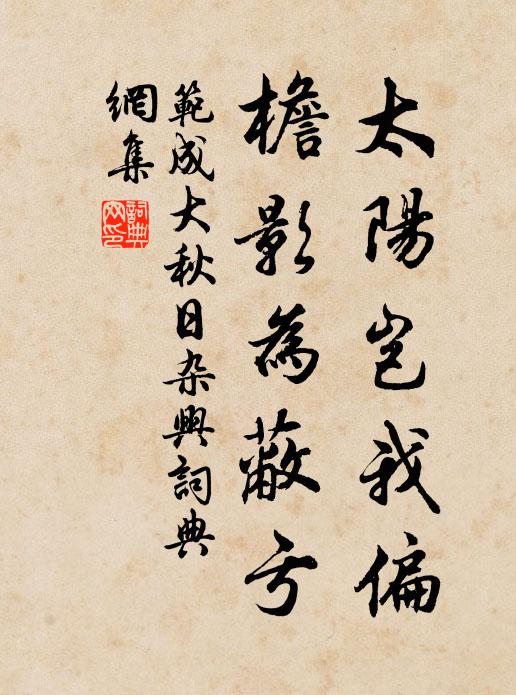 太陽豈我偏
檐影為蔽亏
範成大秋日杂興詞典
網集
詞典
网印